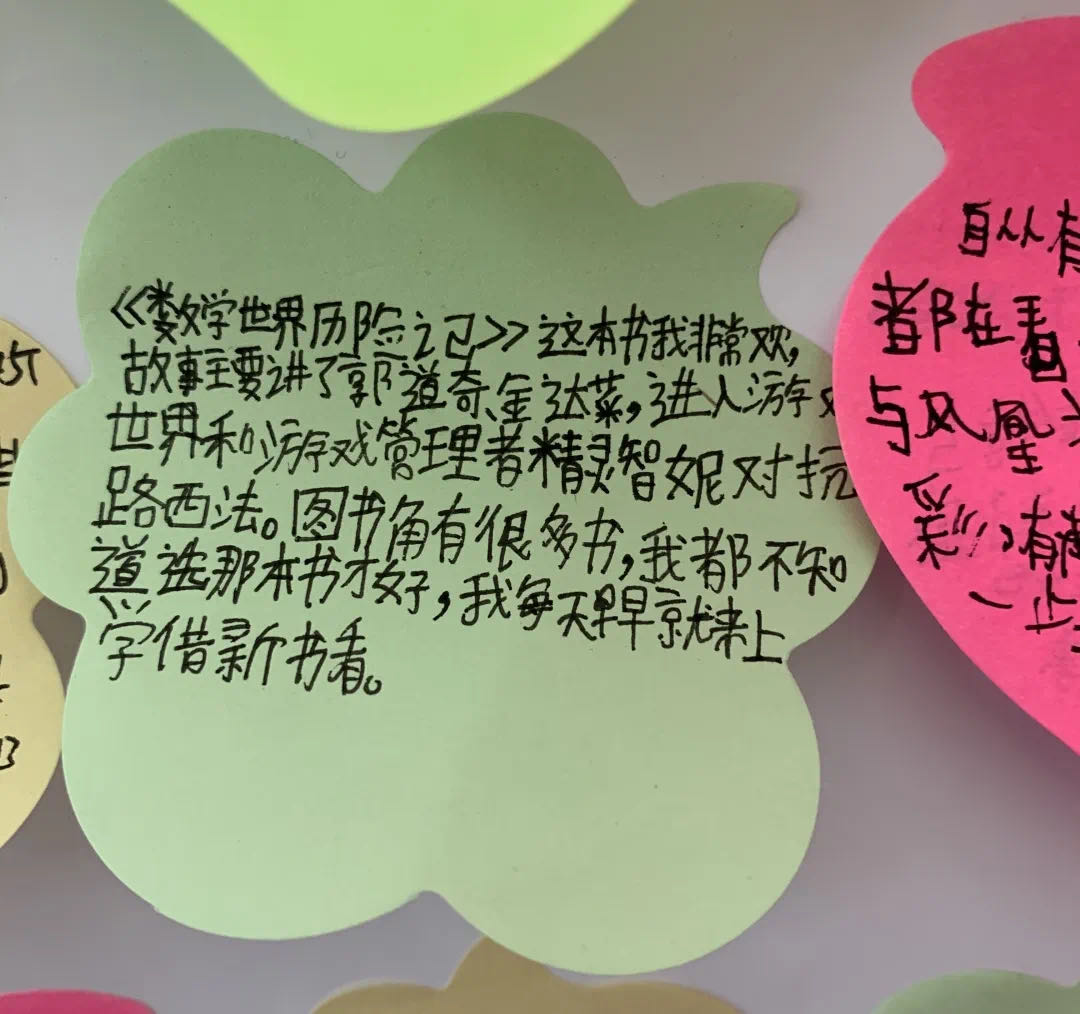 《数学世界历险之记》这本书我非常欢,
故事主要讲了郭道奇、金达莱,进入游
世界和游戏管理者精灵智妮对抗
路西法。图书角有很多书,我都不知
道选那本书才好,我每天早早就来上
学借新书看。
自从有
都在看
与风
彩,有
一止